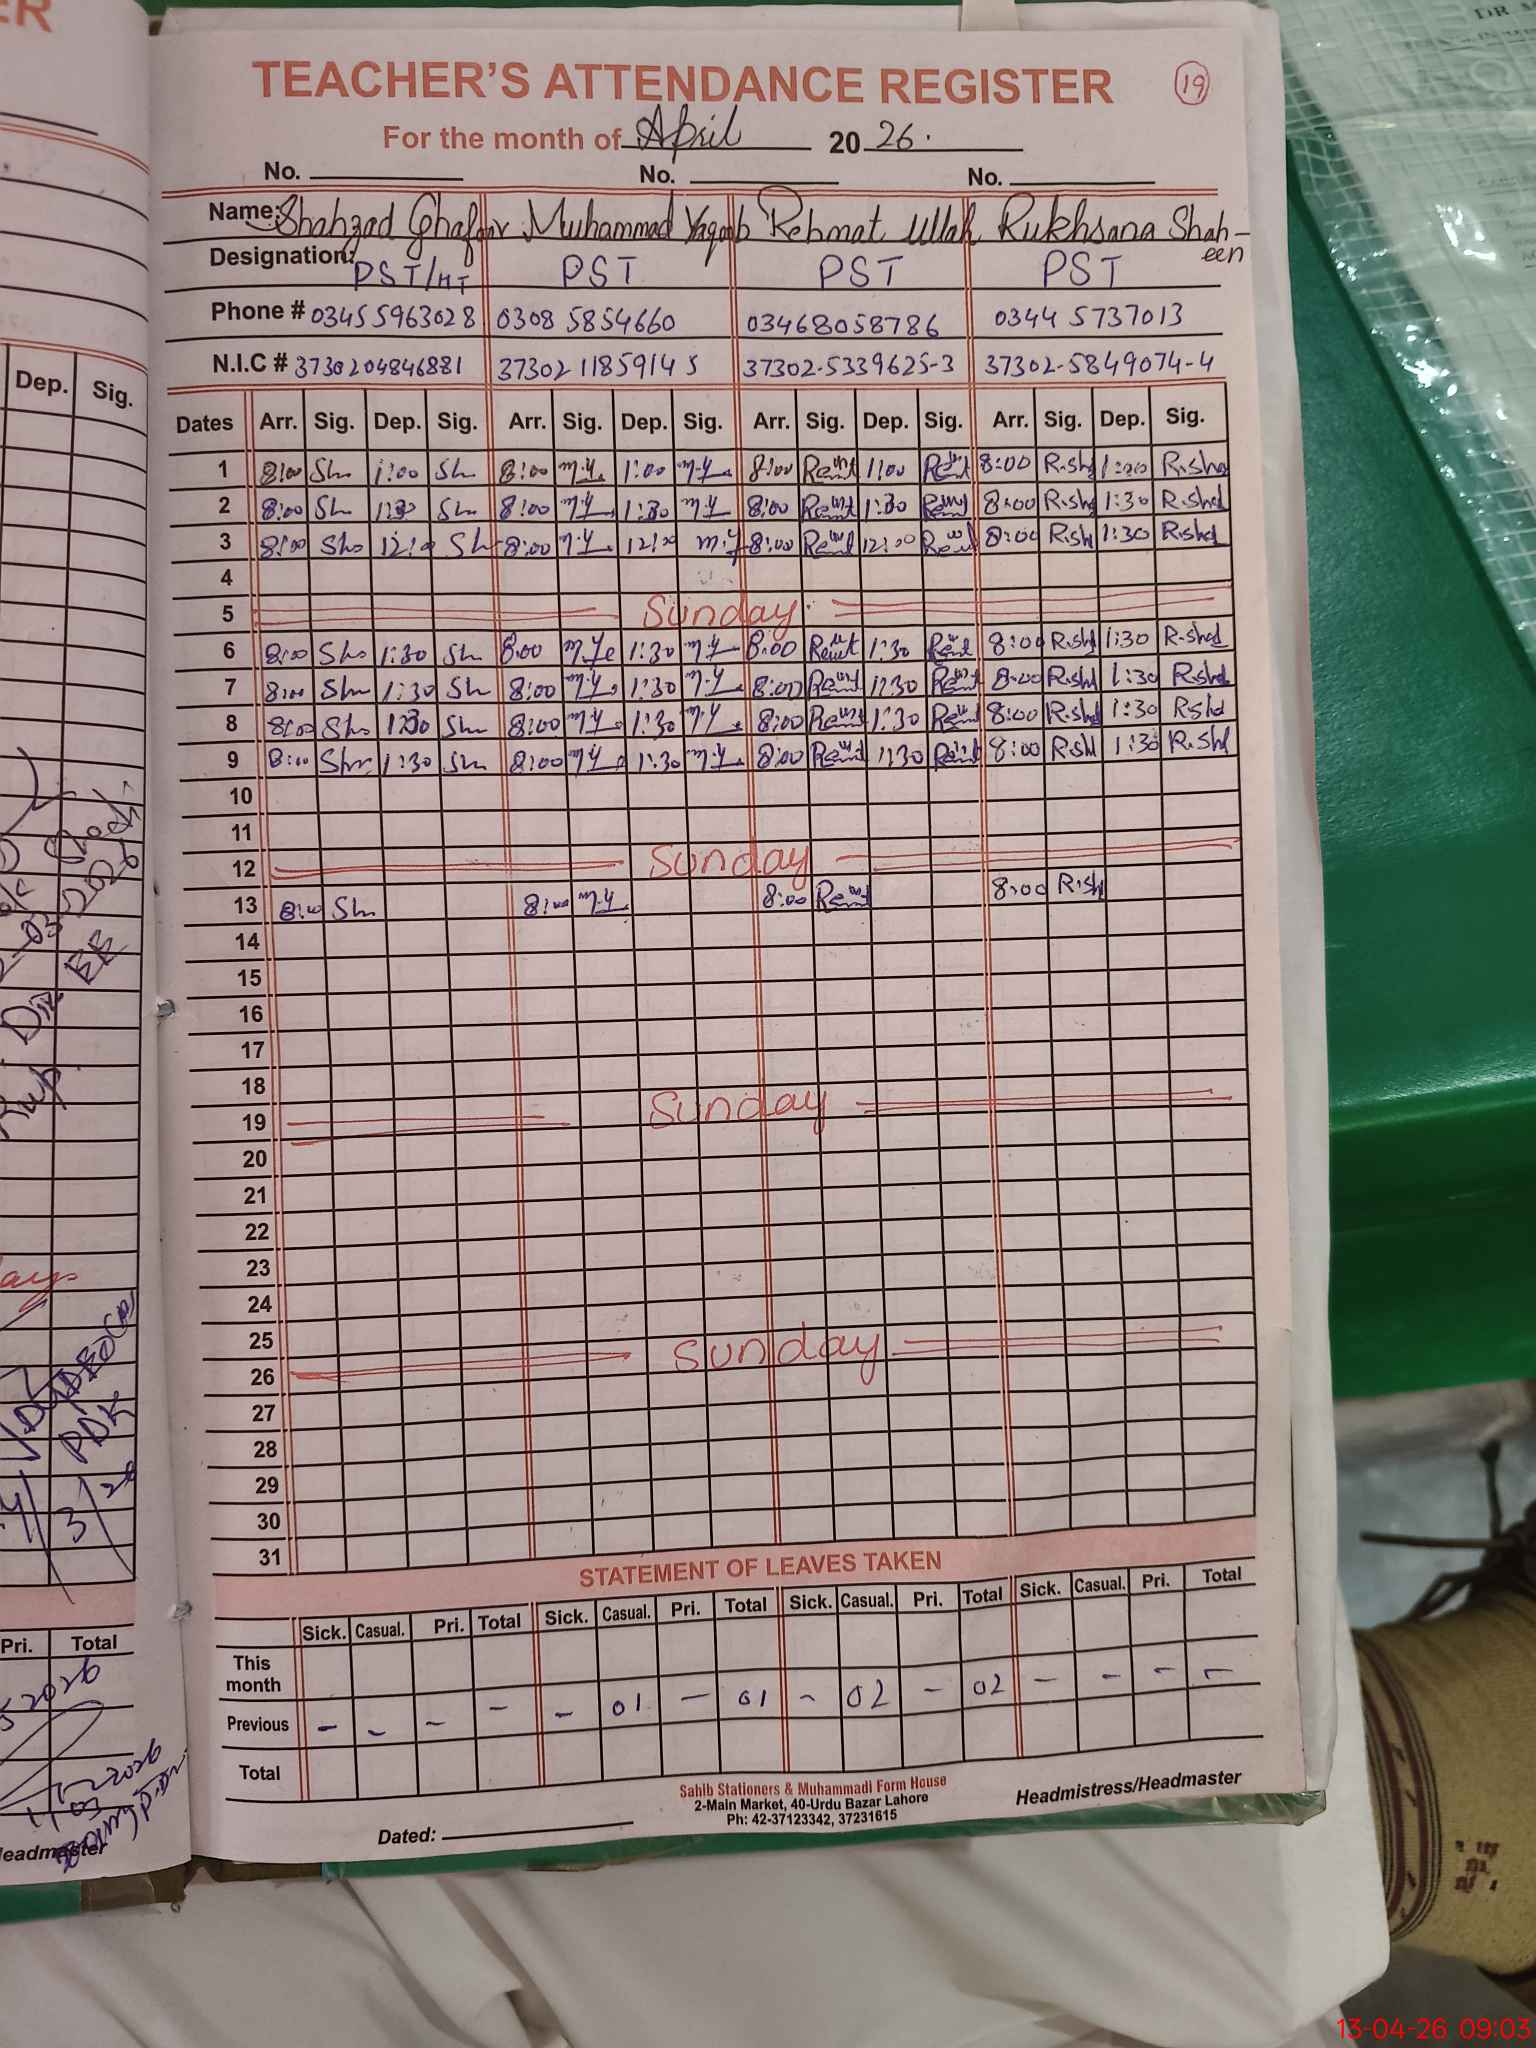 TEACHER'S ATTENDANCE REGISTER
19
For the month of April 2026.
No. No. No.
Name: Shahzad Ghafoor Muhammad Yaqoob Rehmat Ullah Rukhsana Shah-
een
Designation: PST/HT PST PST PST
Phone # 03455963028 0308 5854660 03468058786 0344 5737013
N.I.C # 3730204846881 37302 1185914 5 37302-5339625-3 37302-5849074-4
Dates Arr. Sig. Dep. Sig. Arr. Sig. Dep. Sig. Arr. Sig. Dep. Sig. Arr. Sig. Dep. Sig.
1 8:00 Sh 1:00 Sh 8:00 M.Y 1:00 M.Y 8:00 1:00 8:00 R.Shd 1:00 R.Shd
2 8:00 Sh 1:30 Sh 8:00 M.Y 1:30 M.Y 8:00 1:30 8:00 R.Shd 1:30 R.Shd
3 8:00 Sh 12:00 Sh 8:00 M.Y 12:00 M.Y 8:00 12:00 8:00 R.Shd 1:30 R.Shd
4
5 Sunday
6 8:00 Sh 1:30 Sh 8:00 M.Y 1:30 M.Y 8:00 1:30 8:00 R.Shd 1:30 R.Shd
7 8:00 Sh 1:30 Sh 8:00 M.Y 1:30 M.Y 8:00 1:30 8:00 R.Shd 1:30 R.Shd
8 8:00 Sh 1:30 Sh 8:00 M.Y 1:30 M.Y 8:00 1:30 8:00 R.Shd 1:30 R.Shd
9 8:00 Sh 1:30 Sh 8:00 M.Y 1:30 M.Y 8:00 1:30 8:00 R.Shd 1:30 R.Shd
10
11
12 Sunday
13 8:00 Sh 8:00 M.Y 8:00 8:00 R.Shd
14
15
16
17
18
19 Sunday
20
21
22
23
24
25
26 Sunday
27
28
29
30
31
STATEMENT OF LEAVES TAKEN
Sick. Casual. Pri. Total Sick. Casual. Pri. Total Sick. Casual. Pri. Total Sick. Casual. Pri. Total
This
month
Previous - - - - - 01 - 01 - 02 - 02 - - - -
Total
Sahib Stationers & Muhammadi Form House
2-Main Market, 40-Urdu Bazar Lahore
Ph: 42-37123342, 37231615
Dated:
Headmistress/Headmaster
ER
Dep. Sig.
Pri. Total
13-04-26 09:03